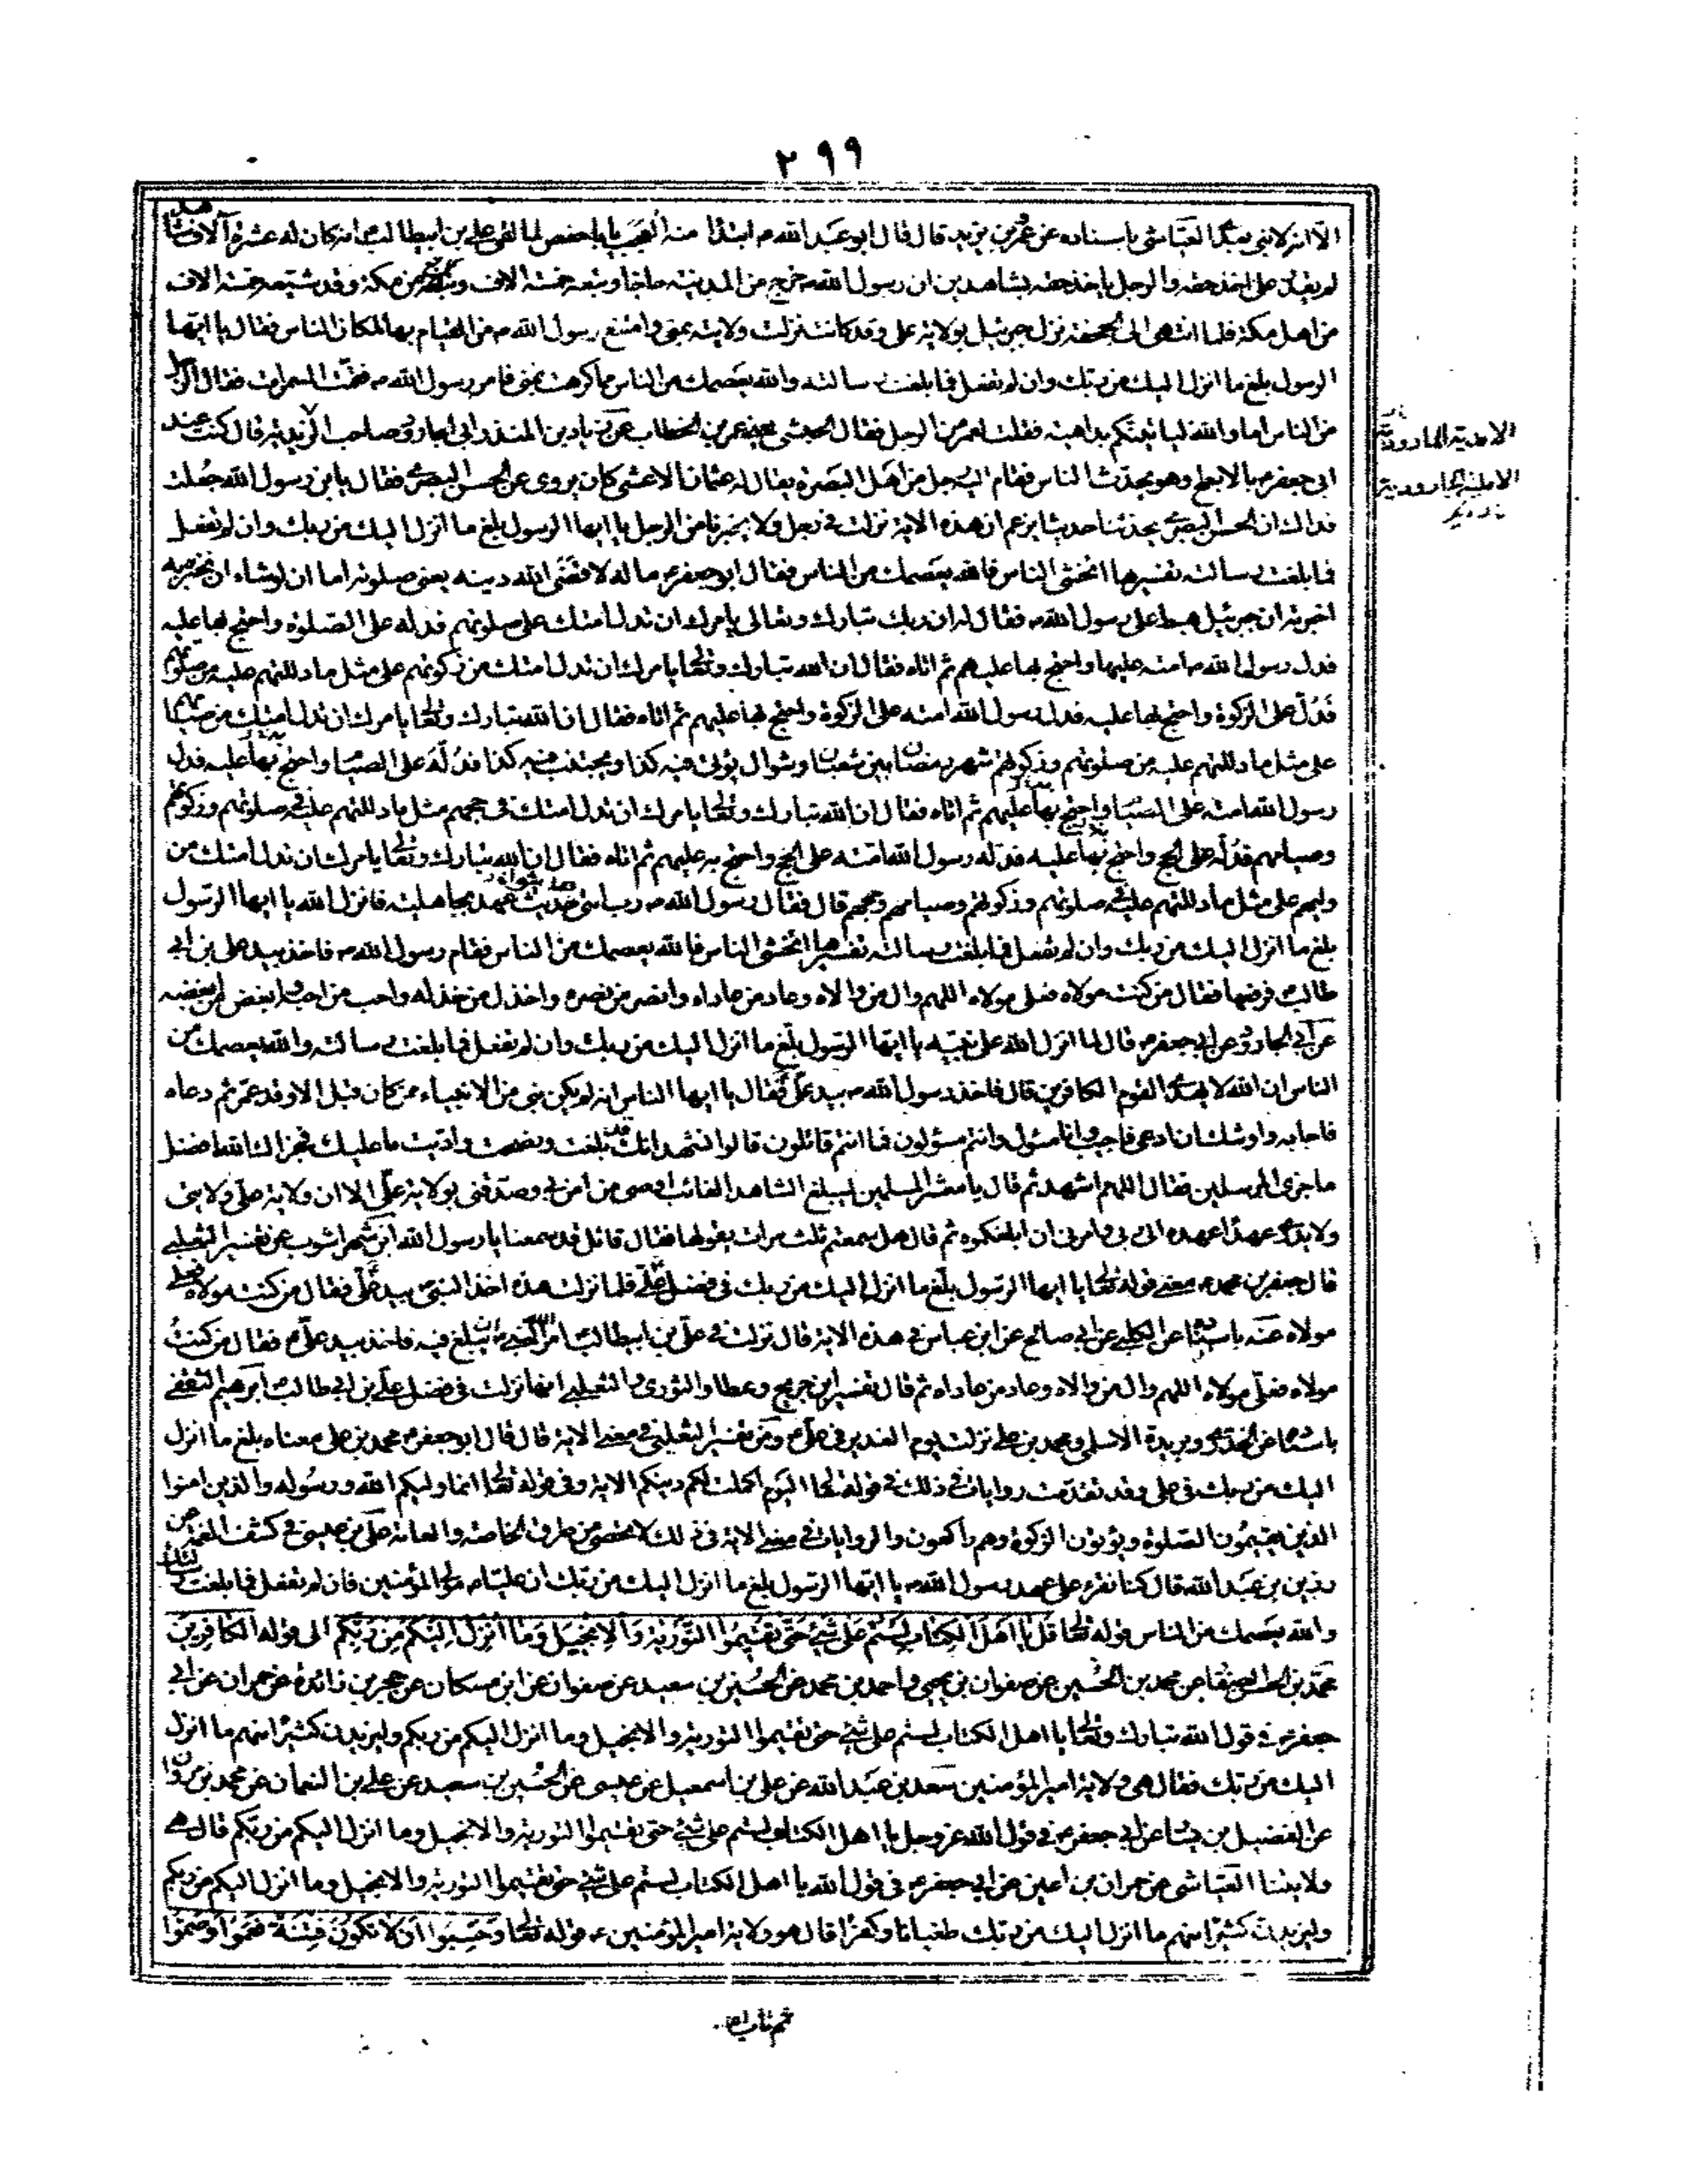 ٢٩٩
الا انه لا نبي بعدي العياشي باسناده عن عمر بن يزيد قال قال ابو عبد الله ابتداء منه العجب يا با حفص لما لقي علي بن ابيطالب انه كان له عشرة آلاف شاهد
لم يقدر على اخذ حقه والرجل ياخذ حقه بشاهدين ان رسول الله خرج من المدينة حاجا وتبعه خمسة الاف و من مكة وقد شيعه خمسة الاف
من اهل مكة فلما انتهى الى الجحفة نزل جبرئيل بولاية علي وقد كانت نزلت ولايته بمنى وامتنع رسول الله من القيام بها لمكان الناس فقال يا ايها
الرسول بلغ ما انزل اليك من ربك وان لم تفعل فما بلغت رسالته والله يعصمك من الناس مما كرهت بمنى فامر رسول الله فقمت السمرات فقال رجل
من الناس اما والله لياتينكم بداهية فقلت لعمر من الرجل فقال الحبشي يعني عمر بن الخطاب عن زياد بن المنذر ابي الجارود صاحب الزيدية قال كنت عند
ابي جعفر بالابطح وهو يحدث الناس فقام اليه رجل من اهل البصرة يقال له عثمان الاعشى كان يروي عن الحسن البصري فقال يا بن رسول الله جعلت
فداك ان الحسن البصري يحدثنا حديثا يزعم ان هذه الاية نزلت في رجل ولا يخبرنا من الرجل يا ايها الرسول بلغ ما انزل اليك من ربك وان لم تفعل
فما بلغت رسالته تفسيرها اتخشى الناس فالله يعصمك من الناس فقال ابو جعفر ما له لا قضى الله دينه يعني صلوته اما ان لو شاء ان يخبر به
اخبر به ان جبرئيل هبط على رسول الله فقال له ان ربك تبارك وتعالى يامرك ان تدل امتك على صلوتهم فدله على الصلوة واحتج بها عليه
فدل رسول الله امته عليها واحتج بها عليهم ثم اتاه فقال ان الله تبارك وتعالى يامرك ان تدل امتك من زكوتهم على مثل ما دللتهم عليه من صلوتهم
فدله على الزكوة واحتج بها عليه فدل رسول الله امته على الزكوة واحتج بها عليهم ثم اتاه فقال ان الله تبارك وتعالى يامرك ان تدل امتك من صيامهم
على مثل ما دللتهم عليه من صلوتهم وزكوتهم شهر رمضان بين شعبان وشوال يؤتى فيه كذا ويجتنب فيه كذا فدله على الصيام واحتج بها عليه فدل
رسول الله امته على الصيام واحتج بها عليهم ثم اتاه فقال ان الله تبارك وتعالى يامرك ان تدل امتك في حجهم مثل ما دللتهم عليه في صلوتهم وزكوتهم
وصيامهم فدله على الحج واحتج بها عليه فدل رسول الله امته على الحج واحتج به عليهم ثم اتاه فقال ان الله تبارك وتعالى يامرك ان تدل امتك من
وليهم على مثل ما دللتهم عليه في صلوتهم وزكوتهم وصيامهم وحجهم قال فقال رسول الله رب امتي حديث عهد بجاهلية فانزل الله يا ايها الرسول
بلغ ما انزل اليك من ربك وان لم تفعل فما بلغت رسالته تفسيرها اتخشى الناس فالله يعصمك من الناس فقام رسول الله فاخذ بيد علي بن ابي
طالب فرفعها فقال من كنت مولاه فعلي مولاه اللهم وال من والاه وعاد من عاداه وانصر من نصره واخذل من خذله واحب من احبه وابغض من ابغضه
عن ابي الجارود عن ابي جعفر قال لما انزل الله على نبيه يا ايها الرسول بلغ ما انزل اليك من ربك وان لم تفعل فما بلغت رسالته والله يعصمك من
الناس ان الله لا يهدي القوم الكافرين قال فاخذ رسول الله بيد علي فقال يا ايها الناس انه لم يكن نبي من الانبياء ممن كان قبلي الا وقد عمر ثم دعاه
فاجابه واوشك ان ادعى فاجيب وانا مسئول وانتم مسؤلون فما انتم قائلون قالوا نشهد انك قد بلغت ونصحت واديت ما عليك فجزاك الله افضل
ما جزى المرسلين فقال اللهم اشهد ثم قال يا معشر المسلمين ليبلغ الشاهد الغائب اوصي من امن بي وصدقني بولاية علي الا ان ولاية علي ولايتي
ولايتي عهدا عهده الي ربي وامرني ان ابلغكموه ثم قال هل سمعتم ثلث مرات يقولها فقال قائل قد سمعنا يا رسول الله ابن شهر اشوب عن تفسير الثعلبي
قال جعفر بن محمد معنى قوله تعالى يا ايها الرسول بلغ ما انزل اليك من ربك في فضل علي فلما نزلت هذه اخذ النبي بيد علي فقال من كنت مولاه فعلي
مولاه عنه باسناده عن الكلبي عن ابي صالح عن ابن عباس في هذه الاية قال نزلت في علي بن ابيطالب امر النبي ان يبلغ فيه فاخذ بيد علي فقال من كنت
مولاه فعلي مولاه اللهم وال من والاه وعاد من عاداه ثم قال تفسير ابن جريج وعطا والثوري والثعلبي انها نزلت في فضل علي بن ابي طالب ابرهيم الثقفي
باسناده عن الخدري وبريدة الاسلمي ومحمد بن علي نزلت يوم الغدير في علي ومن تفسير الثعلبي في معنى الاية قال قال ابو جعفر محمد بن علي معناه بلغ ما انزل
اليك من ربك في علي وقد تقدمت روايات في ذلك في قوله تعالى اليوم اكملت لكم دينكم الاية وفي قوله تعالى انما وليكم الله ورسوله والذين امنوا
الذين يقيمون الصلوة ويؤتون الزكوة وهم راكعون والروايات في معنى الاية في ذلك لا تحصى من طرق الخاصة والعامة علي بن عيسى في كشف الغمة عن
رزين بن عبد الله قال كنا نقرء على عهد رسول الله يا ايها الرسول بلغ ما انزل اليك من ربك ان عليا مولى المؤمنين فان لم تفعل فما بلغت رسالته
والله يعصمك من الناس قوله تعالى قل يا اهل الكتاب لستم على شيء حتى تقيموا التورية والانجيل وما انزل اليكم من ربكم الى قوله الكافرين
محمد بن الحسن الصفار عن محمد بن الحسين عن صفوان بن يحيى واحمد بن محمد عن الحسين بن سعيد عن صفوان عن ابن مسكان عن حجر بن زائدة عن حمران عن ابي
جعفر في قول الله تبارك وتعالى يا اهل الكتاب لستم على شيء حتى تقيموا التورية والانجيل وما انزل اليكم من ربكم وليزيدن كثيرا منهم ما انزل
اليك من ربك فقال هي ولاية امير المؤمنين سعد بن عبد الله عن علي بن اسمعيل عن عيسى عن الحسين بن سعيد عن علي بن النعمان عن محمد بن مروان
عن الفضيل بن يسار عن ابي جعفر في قول الله عز وجل يا اهل الكتاب لستم على شيء حتى تقيموا التورية والانجيل وما انزل اليكم من ربكم قال هي
ولايتنا العياشي عن حمران بن اعين عن ابي جعفر في قول الله يا اهل الكتاب لستم على شيء حتى تقيموا التورية والانجيل وما انزل اليكم من ربكم
وليزيدن كثيرا منهم ما انزل اليك من ربك طغيانا وكفرا قال هو ولاية امير المؤمنين قوله تعالى وحسبوا ان لا تكون فتنة فعموا وصموا
ثم تاب